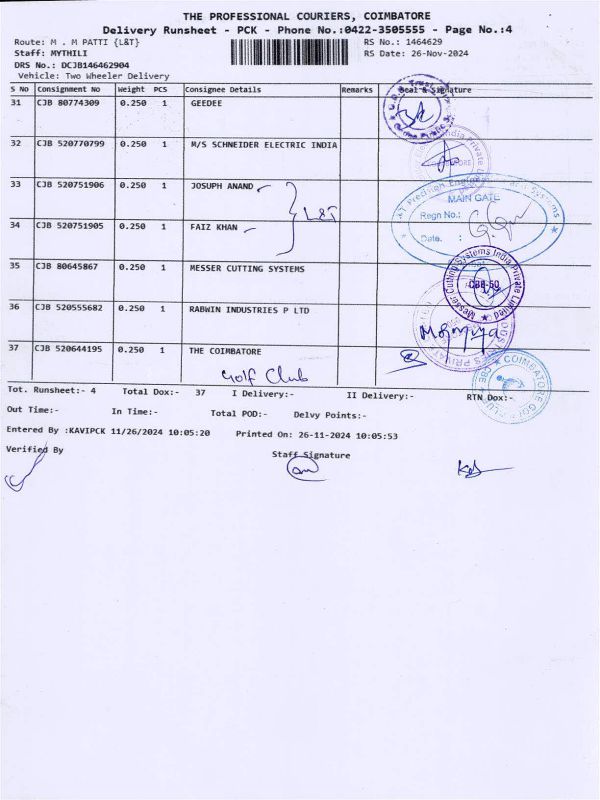 THE PROFESSIONAL COURIERS, COIMBATORE
Delivery Runsheet - PCK - Phone No.:0422-3505555 - Page No.:4
Route: M . M PATTI {L&T}
RS No.: 1464629
Staff: MYTHILI
RS Date: 26-Nov-2024
DRS No.: DCJB146462904
Vehicle: Two Wheeler Delivery
S No Consignment No Weight PCS Consignee Details Remarks Seal & Signature
31 CJB 80774309 0.250 1 GEEDEE
32 CJB 520770799 0.250 1 M/S SCHNEIDER ELECTRIC INDIA
33 CJB 520751906 0.250 1 JOSUPH ANAND
L&T
MAIN GATE
Regn No.:
Date. :
34 CJB 520751905 0.250 1 FAIZ KHAN
35 CJB 80645867 0.250 1 MESSER CUTTING SYSTEMS
Messer Cutting Systems India Private Limited
CBE-50
36 CJB 520555682 0.250 1 RABWIN INDUSTRIES P LTD
37 CJB 520644195 0.250 1 THE COIMBATORE
Golf Club
Tot. Runsheet:- 4 Total Dox:- 37 I Delivery:- II Delivery:- RTN Dox:-
Out Time:- In Time:- Total POD:- Delvy Points:-
Entered By :KAVIPCK 11/26/2024 10:05:20 Printed On: 26-11-2024 10:05:53
Verified By Staff Signature